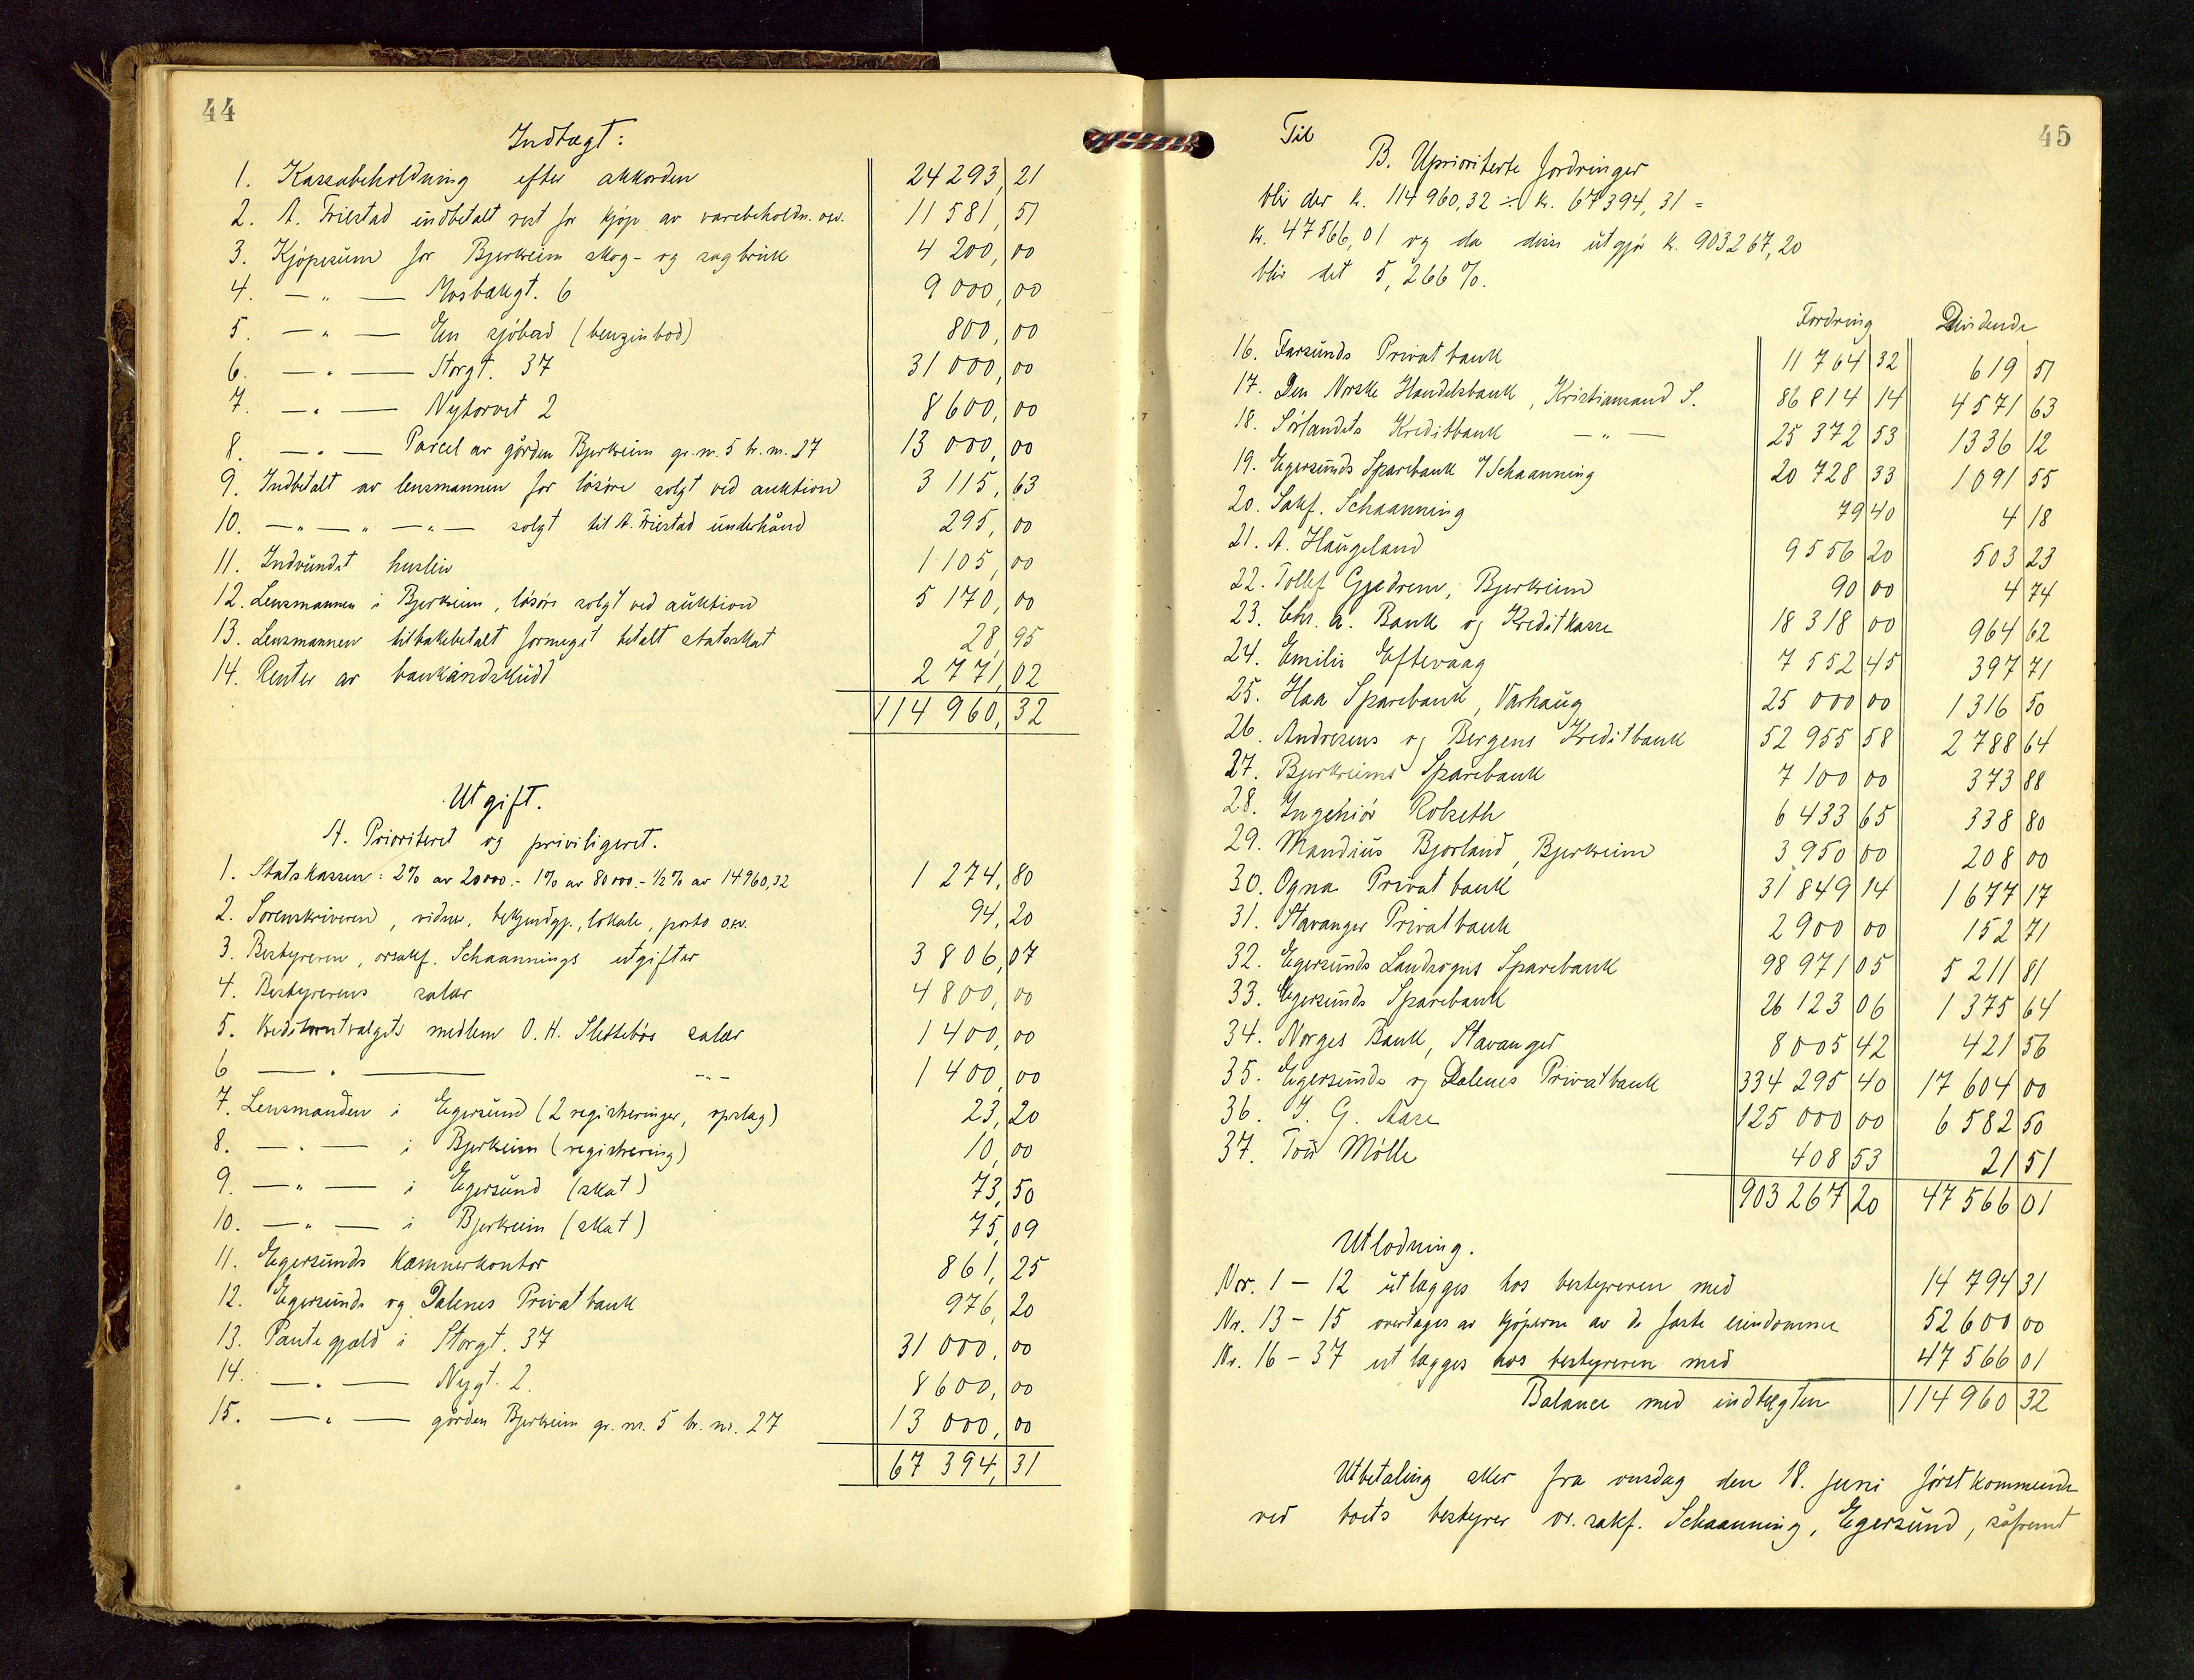 44
Indtægt:
1. Kassabeholdning efter akkorden 24 293,21
2. A. Friestad indbetalt rest for kjøp av varebeholdn. osv. 11 581,51
3. Kjøpesum for Bjerkreim skog- og sagbruk 4 200,00
4. — " — Mosbækgt. 6 9 000,00
5. — " — En sjøbod (benzinbod) 800,00
6. — " — Storgt. 37 31 000,00
7. — " — Nytorvet 2 8 600,00
8. — " — Parcel av gården Bjerkreim gr. nr. 5 br. nr. 27 13 000,00
9. Indbetalt av lensmannen for løsøre solgt ved auktion 3 115,63
10. — " — " — " — solgt til A. Friestad underhånd 295,00
11. Indvundet husleie 1 105,00
12. Lensmannen i Bjerkreim, løsøre solgt ved auktion 5 170,00
13. Lensmannen tilbakebetalt formeget betalt statsskat 28,95
14. Renter av bankindskudd 2 771,02
114 960,32
Utgift.
A. Prioritert og priviligeret.
1. Statskassen: 2% av 20000.- 1% av 80000.- ½% av 14960,32 1 274,80
2. Sorenskriveren, vidner, bekjendtgj., lokale, porto osv. 94,20
3. Bestyreren, orsakf. Schaannings utgifter 3 806,07
4. Bestyrerens salær 4 800,00
5. Kreditorutvalgets medlem O. H. Slettebøe salær 1 400,00
6 — " — — " — 1 400,00
7. Lensmanden i Egersund (2 registreringer, opslag) 23,20
8. — " — i Bjerkreim (registrering) 10,00
9. — " — i Egersund (skat) 73,50
10. — " — i Bjerkreim (skat) 75,09
11. Egersunds Kæmnerkontor 861,25
12. Egersunds og Dalenes Privatbank 976,20
13. Pantegjæld i Storgt. 37 31 000,00
14. — " — Nygt. 2. 8 600,00
15. — " — gården Bjerkreim gr. nr. 5 br. nr. 27 13 000,00
67 394,31
45
Til
B. Uprioriterte fordringer
blir der k. 114 960,32 ÷ k. 67 394,31 =
k. 47 566,01 og da disse utgjør k. 903 267,20
blir det 5,266 %.
Fordring Dividende
16. Farsunds Privatbank 11 764 32 619 51
17. Den Norske Handelsbank, Kristiansand S. 86 814 14 4 571 63
18. Sørlandets Kreditbank — " — 25 372 53 1 336 12
19. Egersunds Sparebank v/Schaanning 20 728 33 1 091 55
20. Sakf. Schaanning 79 40 4 18
21. A. Haugeland 9 556 20 503 23
22. Tollef Gjedrem, Bjerkreim 90 00 4 74
23. Chr. a. Bank og Kreditkasse 18 318 00 964 62
24. Emilie Eftevaag 7 552 45 397 71
25. Haa Sparebank, Varhaug 25 000 00 1 316 50
26. Andresens og Bergens Kreditbank 52 955 58 2 788 64
27. Bjerkreims Sparebank 7 100 00 373 88
28. Ingeniør Rolseth 6 433 65 338 80
29. Mandius Bjorland, Bjerkreim 3 950 00 208 00
30. Ogna Privatbank 31 849 14 1 677 17
31. Stavanger Privatbank 2 900 00 152 71
32. Egersunds Landsogns Sparebank 98 971 05 5 211 81
33. Egersunds Sparebank 26 123 06 1 375 64
34. Norges Bank, Stavanger 8 005 42 421 56
35. Egersunds og Dalenes Privatbank 334 295 40 17 604 00
36. I. G. Aase 125 000 00 6 582 50
37. Tou Mølle 408 53 21 51
903 267 20 47 566 01
Utlodning.
Nr. 1 – 12 utlægges hos bestyreren med 14 794 31
Nr. 13 – 15 overtages av kjøperne av de faste eiendomme 52 600 00
Nr. 16 – 37 utlægges hos bestyreren med 47 566 01
Balance med indtægten 114 960 32
Utbetaling sker fra onsdag den 18. juni førstkommende
ved boets bestyrer or. sakf. Schaanning, Egersund, såfremt